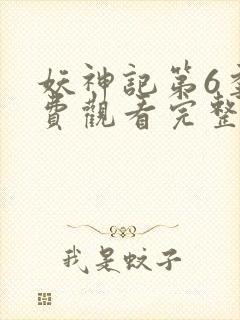 妖神記第6
費觀看完整
我是蚊子